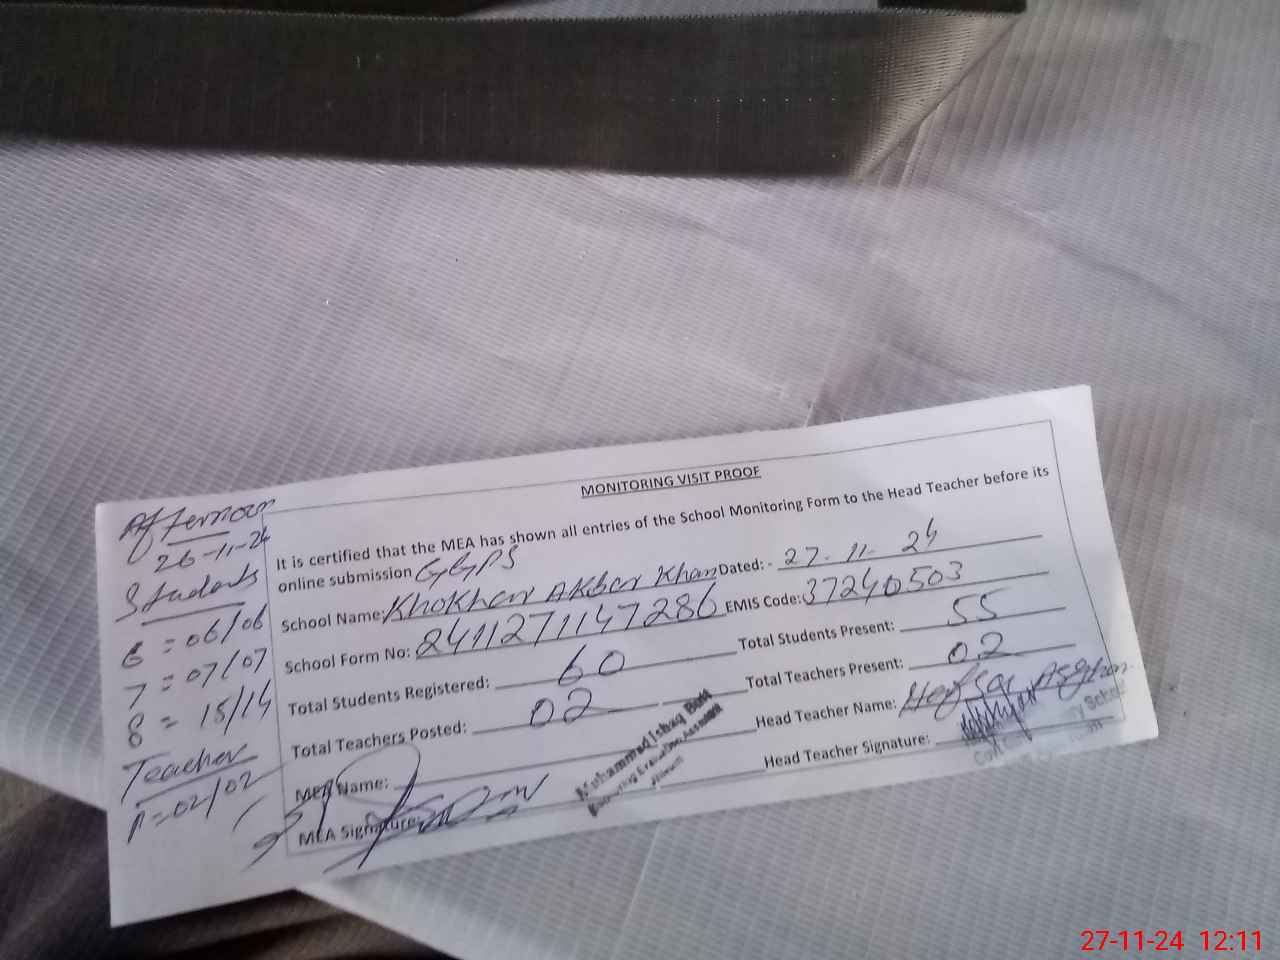 MONITORING VISIT PROOF
It is certified that the MEA has shown all entries of the School Monitoring Form to the Head Teacher before its
online submission
GGPS
School Name: Khokhar Akbar Khan Dated: - 27-11-24
School Form No: 2411271147286 EMIS Code: 37240503
Total Students Registered: 60 Total Students Present: 55
Total Teachers Posted: 02 Total Teachers Present: 02
MEA Name: Head Teacher Name: Hafsa Asghar
MEA Signature: Head Teacher Signature:
Muhammad Ishaq Butt
Monitoring Evaluation Assistant
Afternoon
26-11-24
Students
6 = 06/06
7 = 07/07
8 = 15/14
Teacher
02/02
27-11-24 12:11